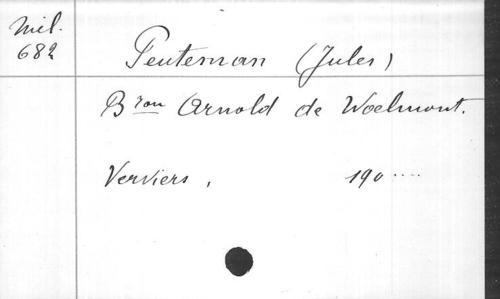 Mil.
682
Peuteman (Jules)
Bron Arnold de Woelmont.
Verviers, 190....